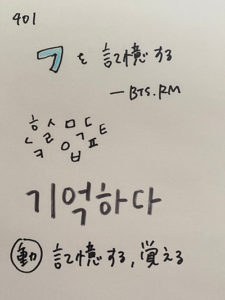 401
ㄱを記憶する
—BTS.RM
기억하다
動 記憶する,覚える